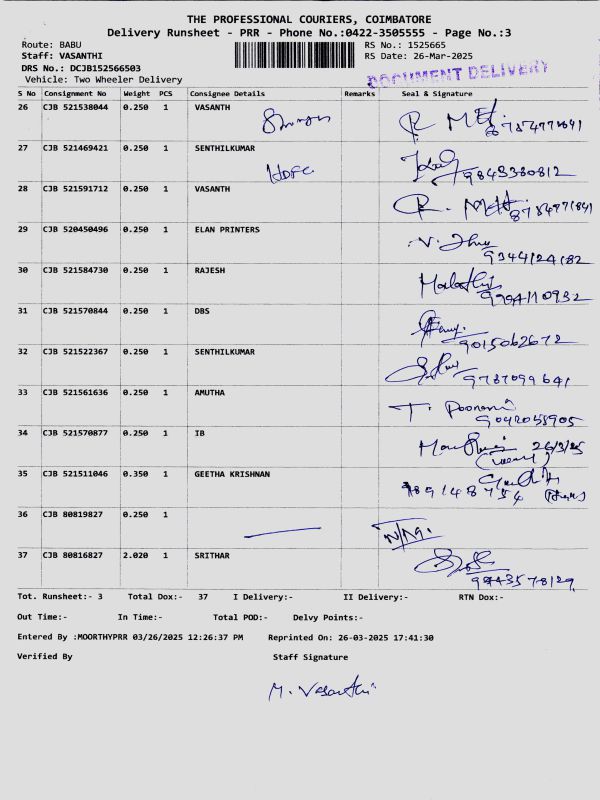 THE PROFESSIONAL COURIERS, COIMBATORE
Delivery Runsheet - PRR - Phone No.:0422-3505555 - Page No.:3
Route: BABU RS No.: 1525665
Staff: VASANTHI RS Date: 26-Mar-2025
DRS No.: DCJB152566503
DOCUMENT DELIVERY
Vehicle: Two Wheeler Delivery
S No Consignment No Weight PCS Consignee Details Remarks Seal & Signature
26 CJB 521538044 0.250 1 VASANTH
27 CJB 521469421 0.250 1 SENTHILKUMAR
HDFC 9843380812
28 CJB 521591712 0.250 1 VASANTH
29 CJB 520450496 0.250 1 ELAN PRINTERS
9344124182
30 CJB 521584730 0.250 1 RAJESH
9994110932
31 CJB 521570844 0.250 1 DBS
9015062672
32 CJB 521522367 0.250 1 SENTHILKUMAR
9787099641
33 CJB 521561636 0.250 1 AMUTHA
9042055905
34 CJB 521570877 0.250 1 IB
26/3/25
35 CJB 521511046 0.350 1 GEETHA KRISHNAN
36 CJB 80819827 0.250 1
N/A.
37 CJB 80816827 2.020 1 SRITHAR
9443578129
Tot. Runsheet:- 3 Total Dox:- 37 I Delivery:- II Delivery:- RTN Dox:-
Out Time:- In Time:- Total POD:- Delvy Points:-
Entered By :MOORTHYPRR 03/26/2025 12:26:37 PM Reprinted On: 26-03-2025 17:41:30
Verified By Staff Signature
M. Vasanthi